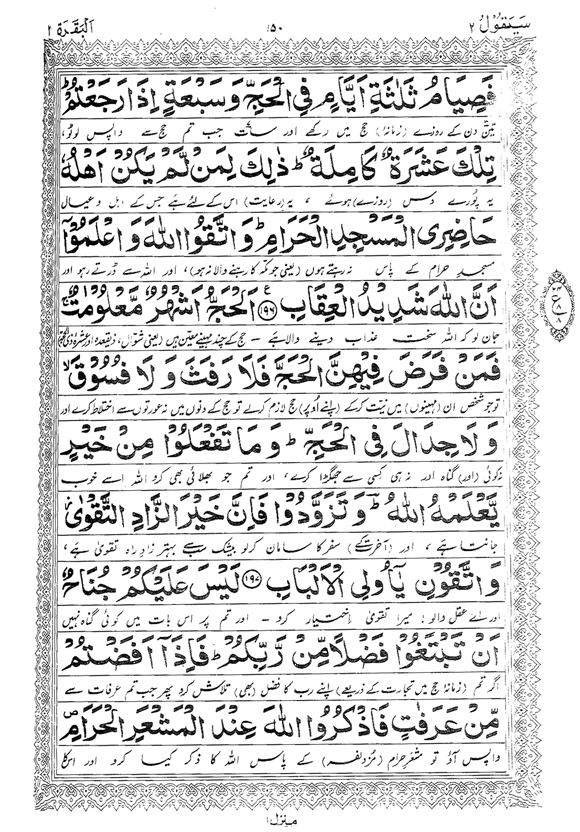 سَيَقُوْلُ ٢ ١٥٠ اَلْبَقَرَة ٢
فَصِيَامُ ثَلٰثَةِ اَيَّامٍ فِي الْحَجِّ وَسَبْعَةٍ اِذَا رَجَعْتُمْ ؕ
تین دن کے روزے (زمانۂ) حج میں رکھے اور سات جب تم حج سے واپس لوٹو،
تِلْكَ عَشَرَةٌ كَامِلَةٌ ؕ ذٰلِكَ لِمَنْ لَّمْ يَكُنْ اَهْلُهٗ
یہ پورے دس (روزے) ہوئے، یہ (رعایت) اس کے لئے ہے جس کے اہل و عیال
حَاضِرِي الْمَسْجِدِ الْحَرَامِ ؕ وَاتَّقُوا اللّٰهَ وَاعْلَمُوْۤا
مسجدِ حرام کے پاس نہ رہتے ہوں (یعنی جو مکہ کا رہنے والا نہ ہو)، اور اللہ سے ڈرتے رہو اور
اَنَّ اللّٰهَ شَدِيْدُ الْعِقَابِ ۝١٩٦ اَلْحَجُّ اَشْهُرٌ مَّعْلُوْمٰتٌ ۚ
جان لو کہ اللہ سخت عذاب دینے والا ہے - حج کے چند مہینے معیّن ہیں (یعنی شوّال، ذیقعدہ اور عشرہ ذی الحجہ)
فَمَنْ فَرَضَ فِيْهِنَّ الْحَجَّ فَلَا رَفَثَ وَلَا فُسُوْقَ ۙ
تو جو شخص ان (مہینوں) میں نیت کر کے (اپنے اوپر) حج لازم کر لے تو حج کے دنوں میں نہ عورتوں سے اختلاط کرے اور
وَلَا جِدَالَ فِي الْحَجِّ ؕ وَمَا تَفْعَلُوْا مِنْ خَيْرٍ
نہ کوئی (اور) گناہ اور نہ ہی کسی سے جھگڑا کرے، اور تم جو بھلائی بھی کرو اللہ اسے خوب
يَّعْلَمْهُ اللّٰهُ ؕ وَتَزَوَّدُوْا فَاِنَّ خَيْرَ الزَّادِ التَّقْوٰى ؗ
جانتا ہے، اور (آخرت کے) سفر کا سامان کر لو بیشک سب سے بہتر زادِ راہ تقویٰ ہے،
وَاتَّقُوْنِ يٰۤاُولِي الْاَلْبَابِ ۝١٩٧ لَيْسَ عَلَيْكُمْ جُنَاحٌ
اور اے عقل والو! میرا تقویٰ اختیار کرو - اور تم پر اس بات میں کوئی گناہ نہیں
اَنْ تَبْتَغُوْا فَضْلًا مِّنْ رَّبِّكُمْ ؕ فَاِذَاۤ اَفَضْتُمْ
اگر تم (زمانۂ حج میں تجارت کے ذریعے) اپنے رب کا فضل (بھی) تلاش کرو پھر جب تم عرفات سے
مِّنْ عَرَفٰتٍ فَاذْكُرُوا اللّٰهَ عِنْدَ الْمَشْعَرِ الْحَرَامِ ۪
واپس آؤ تو مشعرِ حرام (مُزدلفہ) کے پاس اللہ کا ذکر کیا کرو اور اس کا
منزل ١